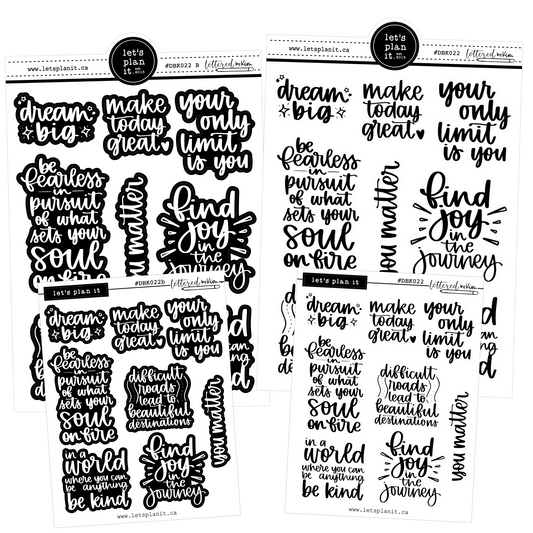 let's
plan
it.
EST.
2015
www.letsplanit.ca
#DBK022 B
lettered.by.kim
dream
big
make
today
great
your
only
limit
is you
be
fearless
in
pursuit
of what
sets your
soul
on fire
you matter
find
joy
in the
journey
let's
plan
it.
EST.
2015
www.letsplanit.ca
#DBK022
dream
big
make
today
great
your
only
limit
is you
be
fearless
in
pursuit
of what
sets your
soul
on fire
you matter
find
joy
in the
journey
let's plan it
#DBK022b
dream
big
make
today
great
your
only
limit
is you
be
fearless
in
pursuit
of what
sets your
soul
on fire
difficult
roads
lead to
beautiful
destinations
you matter
in a
world
where you can
be anything
be kind
find
joy
in the
journey
www.letsplanit.ca
let's plan it
#DBK022
dream
big
make
today
great
your
only
limit
is you
be
fearless
in
pursuit
of what
sets your
soul
on fire
difficult
roads
lead to
beautiful
destinations
you matter
in a
world
where you can
be anything
be kind
find
joy
in the
journey
www.letsplanit.ca